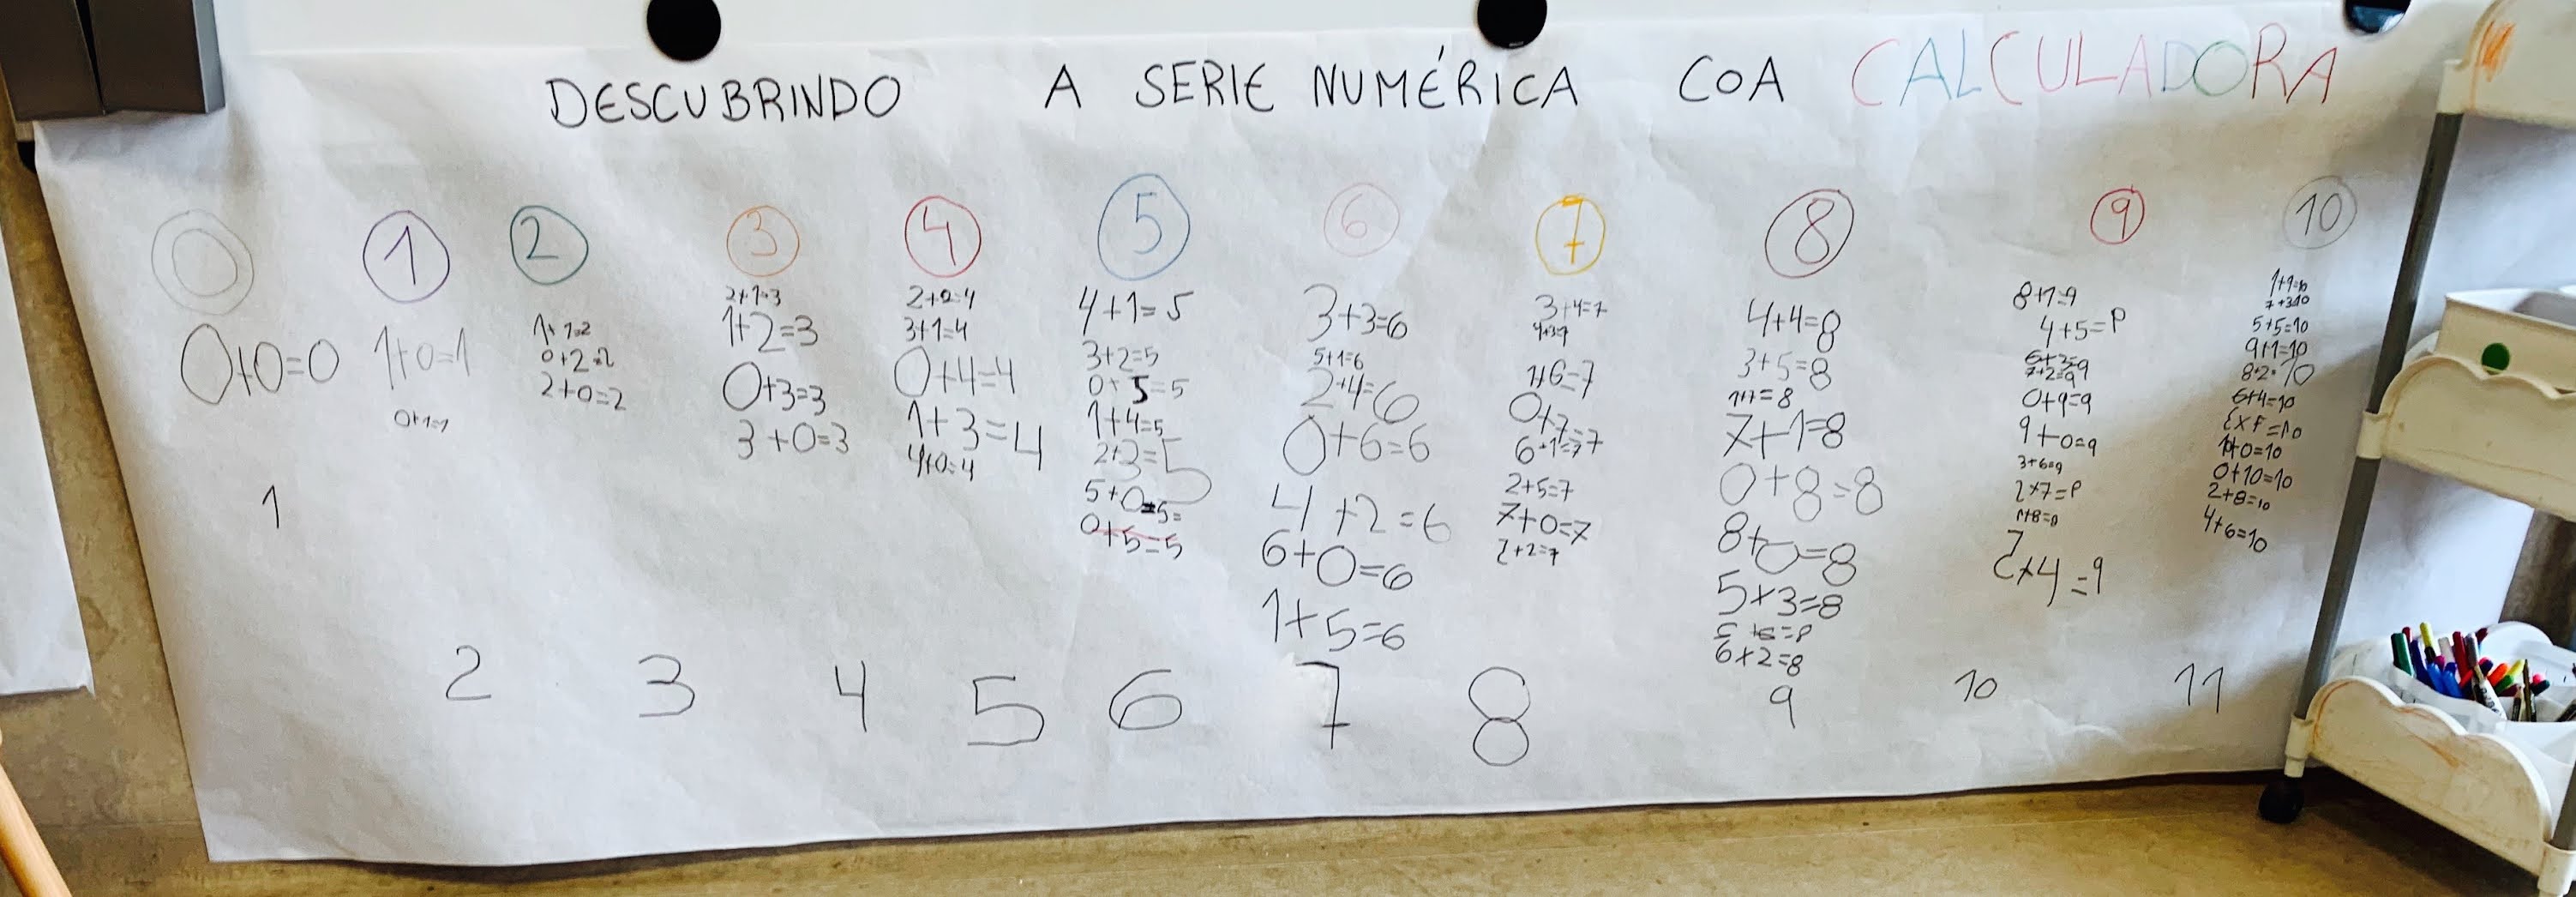 DESCUBRINDO A SERIE NUMÉRICA COA CALCULADORA
0
0+0=0
1
1+0=1
0+1=1
2
1+1=2
0+2=2
2+0=2
3
2+1=3
1+2=3
0+3=3
3+0=3
4
2+2=4
3+1=4
0+4=4
1+3=4
4+0=4
5
4+1=5
3+2=5
0+5=5
1+4=5
2+3=5
5+0=5=
0+5=5
6
3+3=6
5+1=6
2+4=6
0+6=6
4+2=6
6+0=6
1+5=6
7
3+4=7
4+3=7
1+6=7
0+7=7
6+1=7
2+5=7
7+0=7
8
4+4=8
3+5=8
1+7=8
7+1=8
0+8=8
8+0=8
5+3=8
6+2=8
9
8+1=9
4+5=9
6+3=9
7+2=9
0+9=9
9+0=9
3+6=9
2+7=9
1+8=9
10
7+3=10
5+5=10
9+1=10
8+2=10
6+4=10
0+10=10
2+8=10
4+6=10
1 2 3 4 5 6 7 8 9 10 11